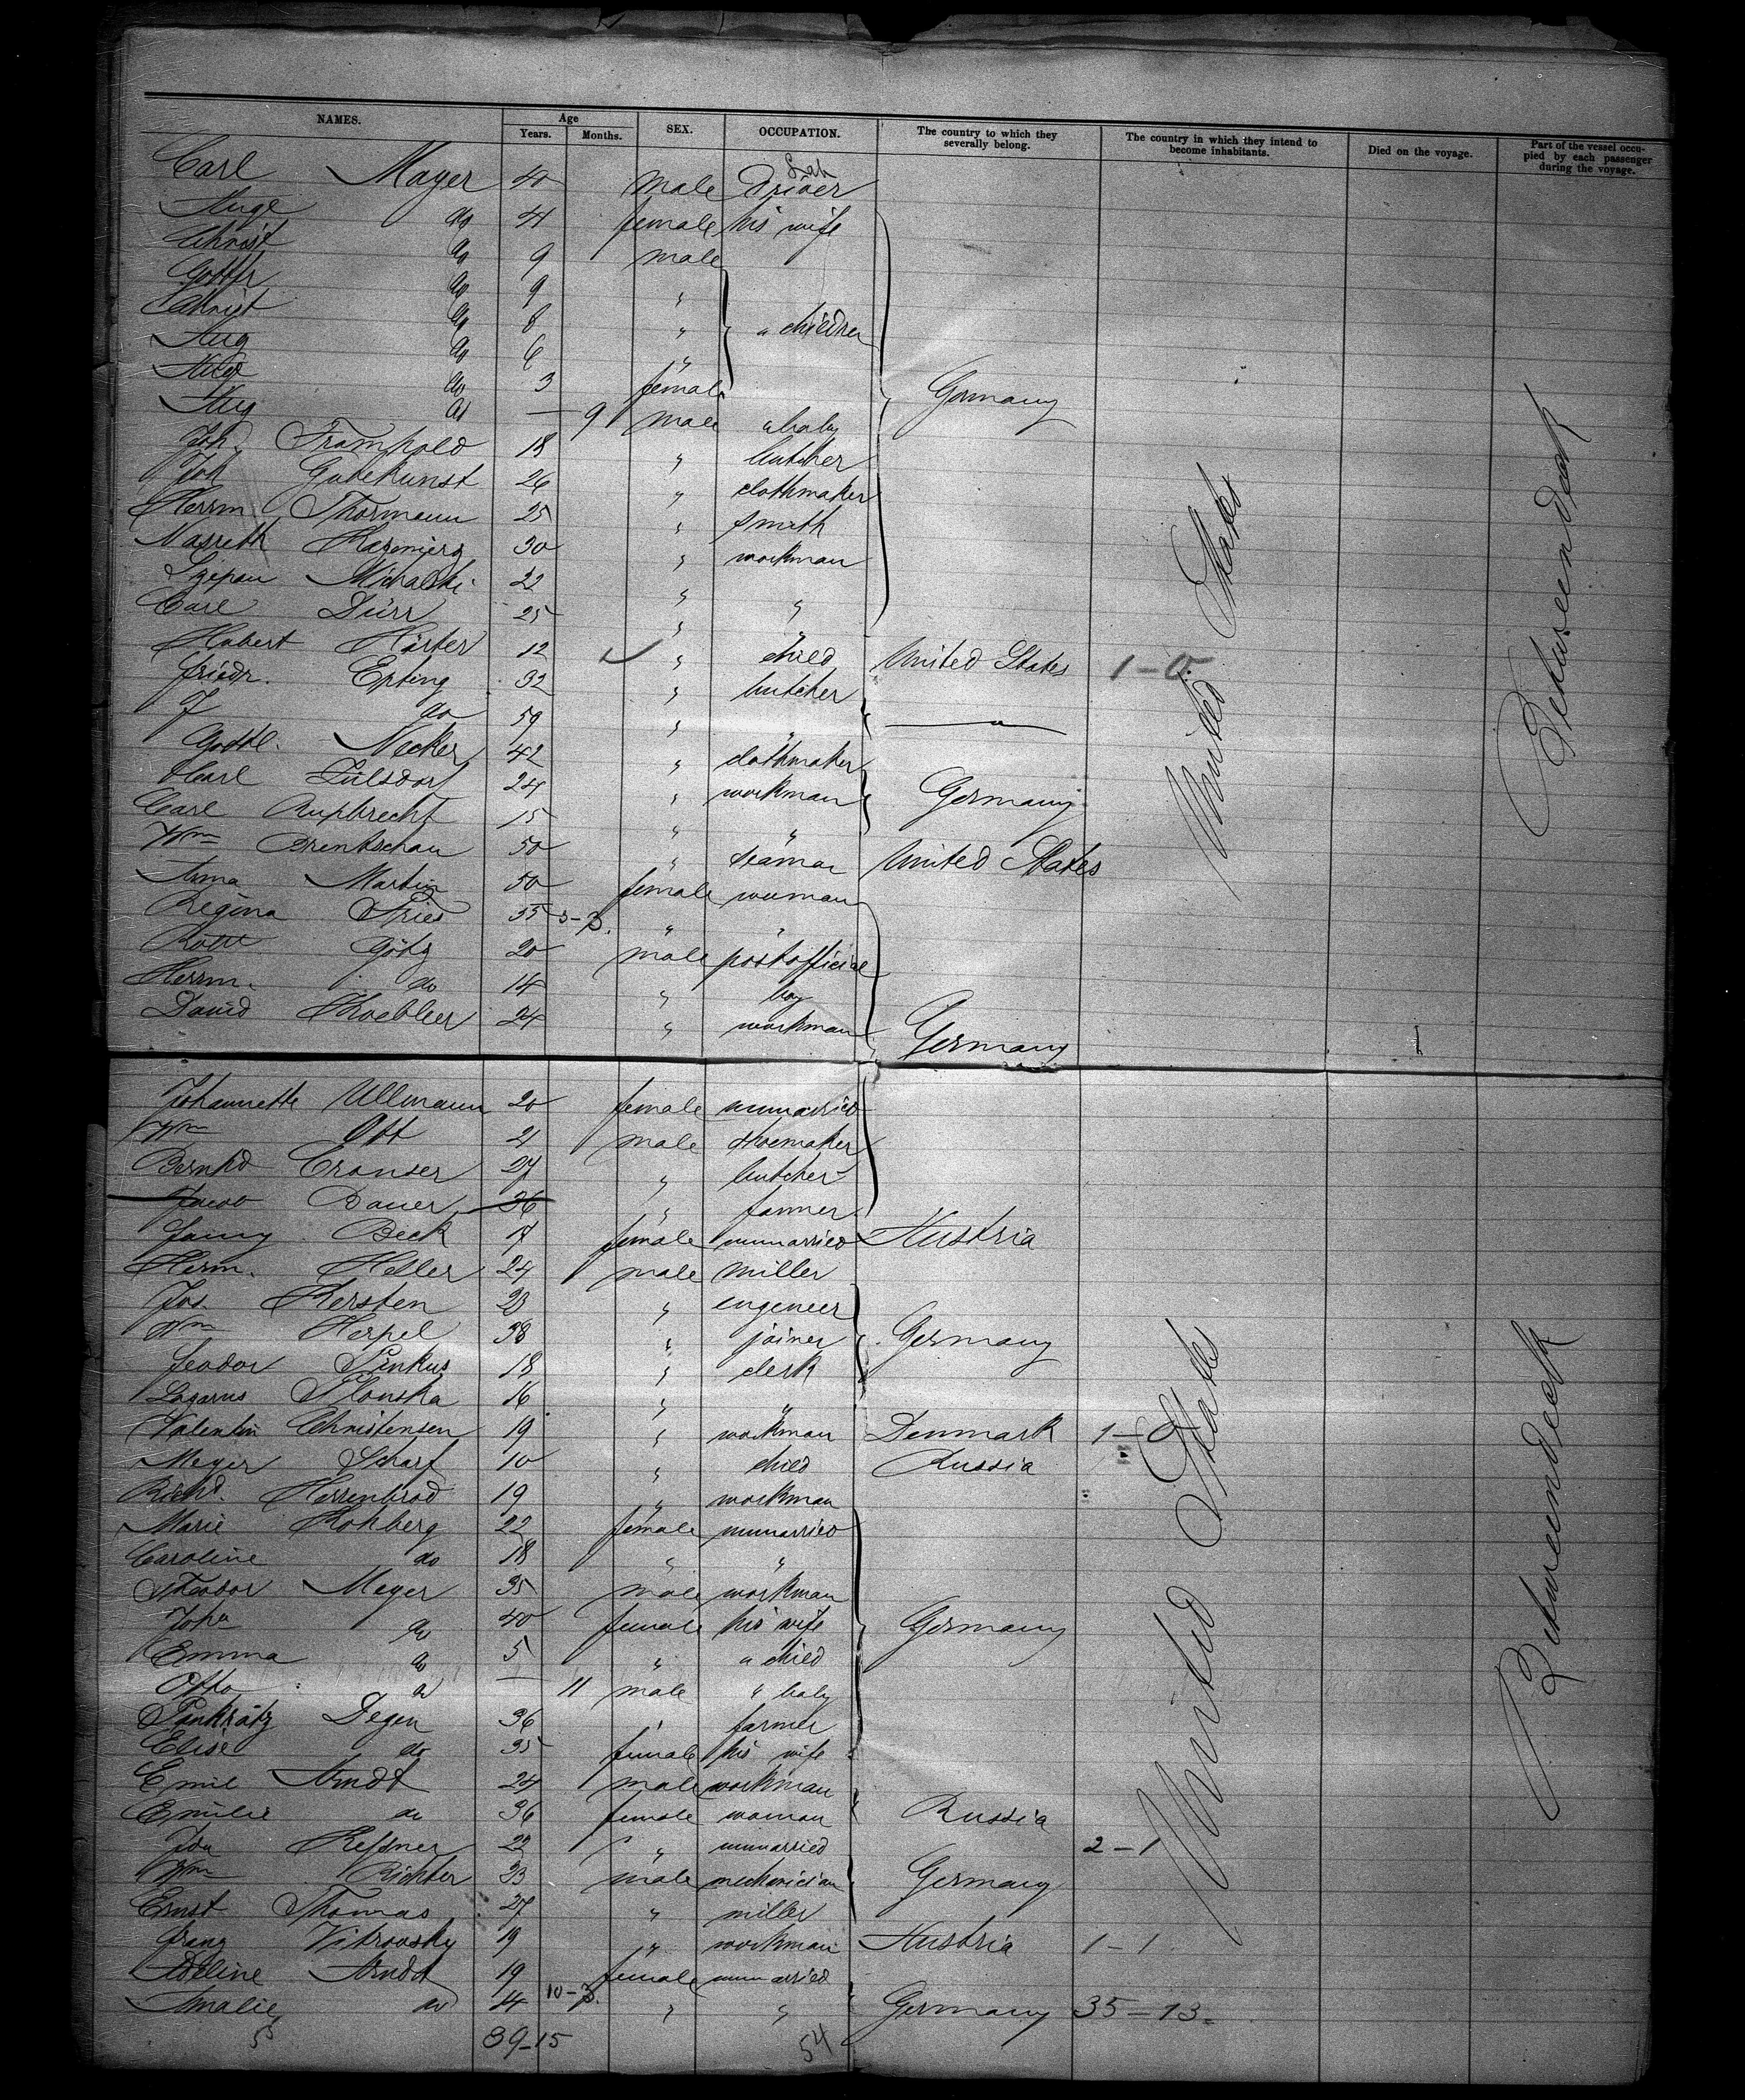 NAMES. Age SEX. OCCUPATION. The country to which they severally belong. The country in which they intend to become inhabitants. Died on the voyage. Part of the vessel occupied by each passenger during the voyage.
Years. Months.
Carl Mayer 40 male Driver
do 41 female his wife
Christ do 9 male
Gottfr do 9 "
Christ do 8 " " children
Aug do 6 "
do 3 female Germany
Aug do — 9 male a baby
Joh. Tramphold 18 " butcher
Joh Gutekunst 26 " clothmaker
Herrm Thormann 25 " smith
30 " workman
Szepan Michalski 22 " "
Carl Dürr 25 " "
Hubert Hörter 12 " child United States 1-0
Friedr. Epting 32 " butcher
F do 59 " "
Gottl. Necker 42 " clothmaker
Carl Lülsdorf 24 " workman Germany
Carl Rupbrecht 15 " "
Wm Brentschau 50 " seaman United States
Anna Martin 50 female woman
Regina Spies 55 3-3. " "
Götz 20 male postofficial
Herrm. do 14 " boy
David Koebbler 24 " workman Germany
United States
Between deck
Johannette Ullmann 20 female unmarried
Wm Ott 21 male shoemaker
Bernhd Cronser 27 " butcher
Jacob Bauer 36 " farmer
Fanny Beck 17 female unmarried Austria
Herm. Heller 24 male miller
Jos. Kersten 23 " engeneer
Wm Herpel 38 " joiner Germany
Feodor Pinkus 18 " clerk
Lazarus Plonska 16 " "
Valentin Christensen 19 " workman Denmark 1-0
Meyer Scharf 10 " child Russia
Richd. Herrenbrod 19 " workman
Marie Kohberg 22 female unmarried
Caroline do 18 " "
Theodor Meyer 35 male workman
Joha do 40 female his wife Germany
Emma do 5 " a child
Otto do — 11 male " baby
Pankratz Degen 36 " farmer
Elise do 35 female his wife
Emil Arndt 24 male workman
Emilie do 36 female woman Russia
Ida Kessner 22 " unmarried 2-1
Wm Richter 23 male mechanician Germany
Ernst Thomas 27 " miller
Franz Vitrovsky 19 " workman Austria 1-1
Adeline Arndt 19 female unmarried
Amalie do 4 10-3. " " Germany 35-13
39-15 54
United States
Between deck